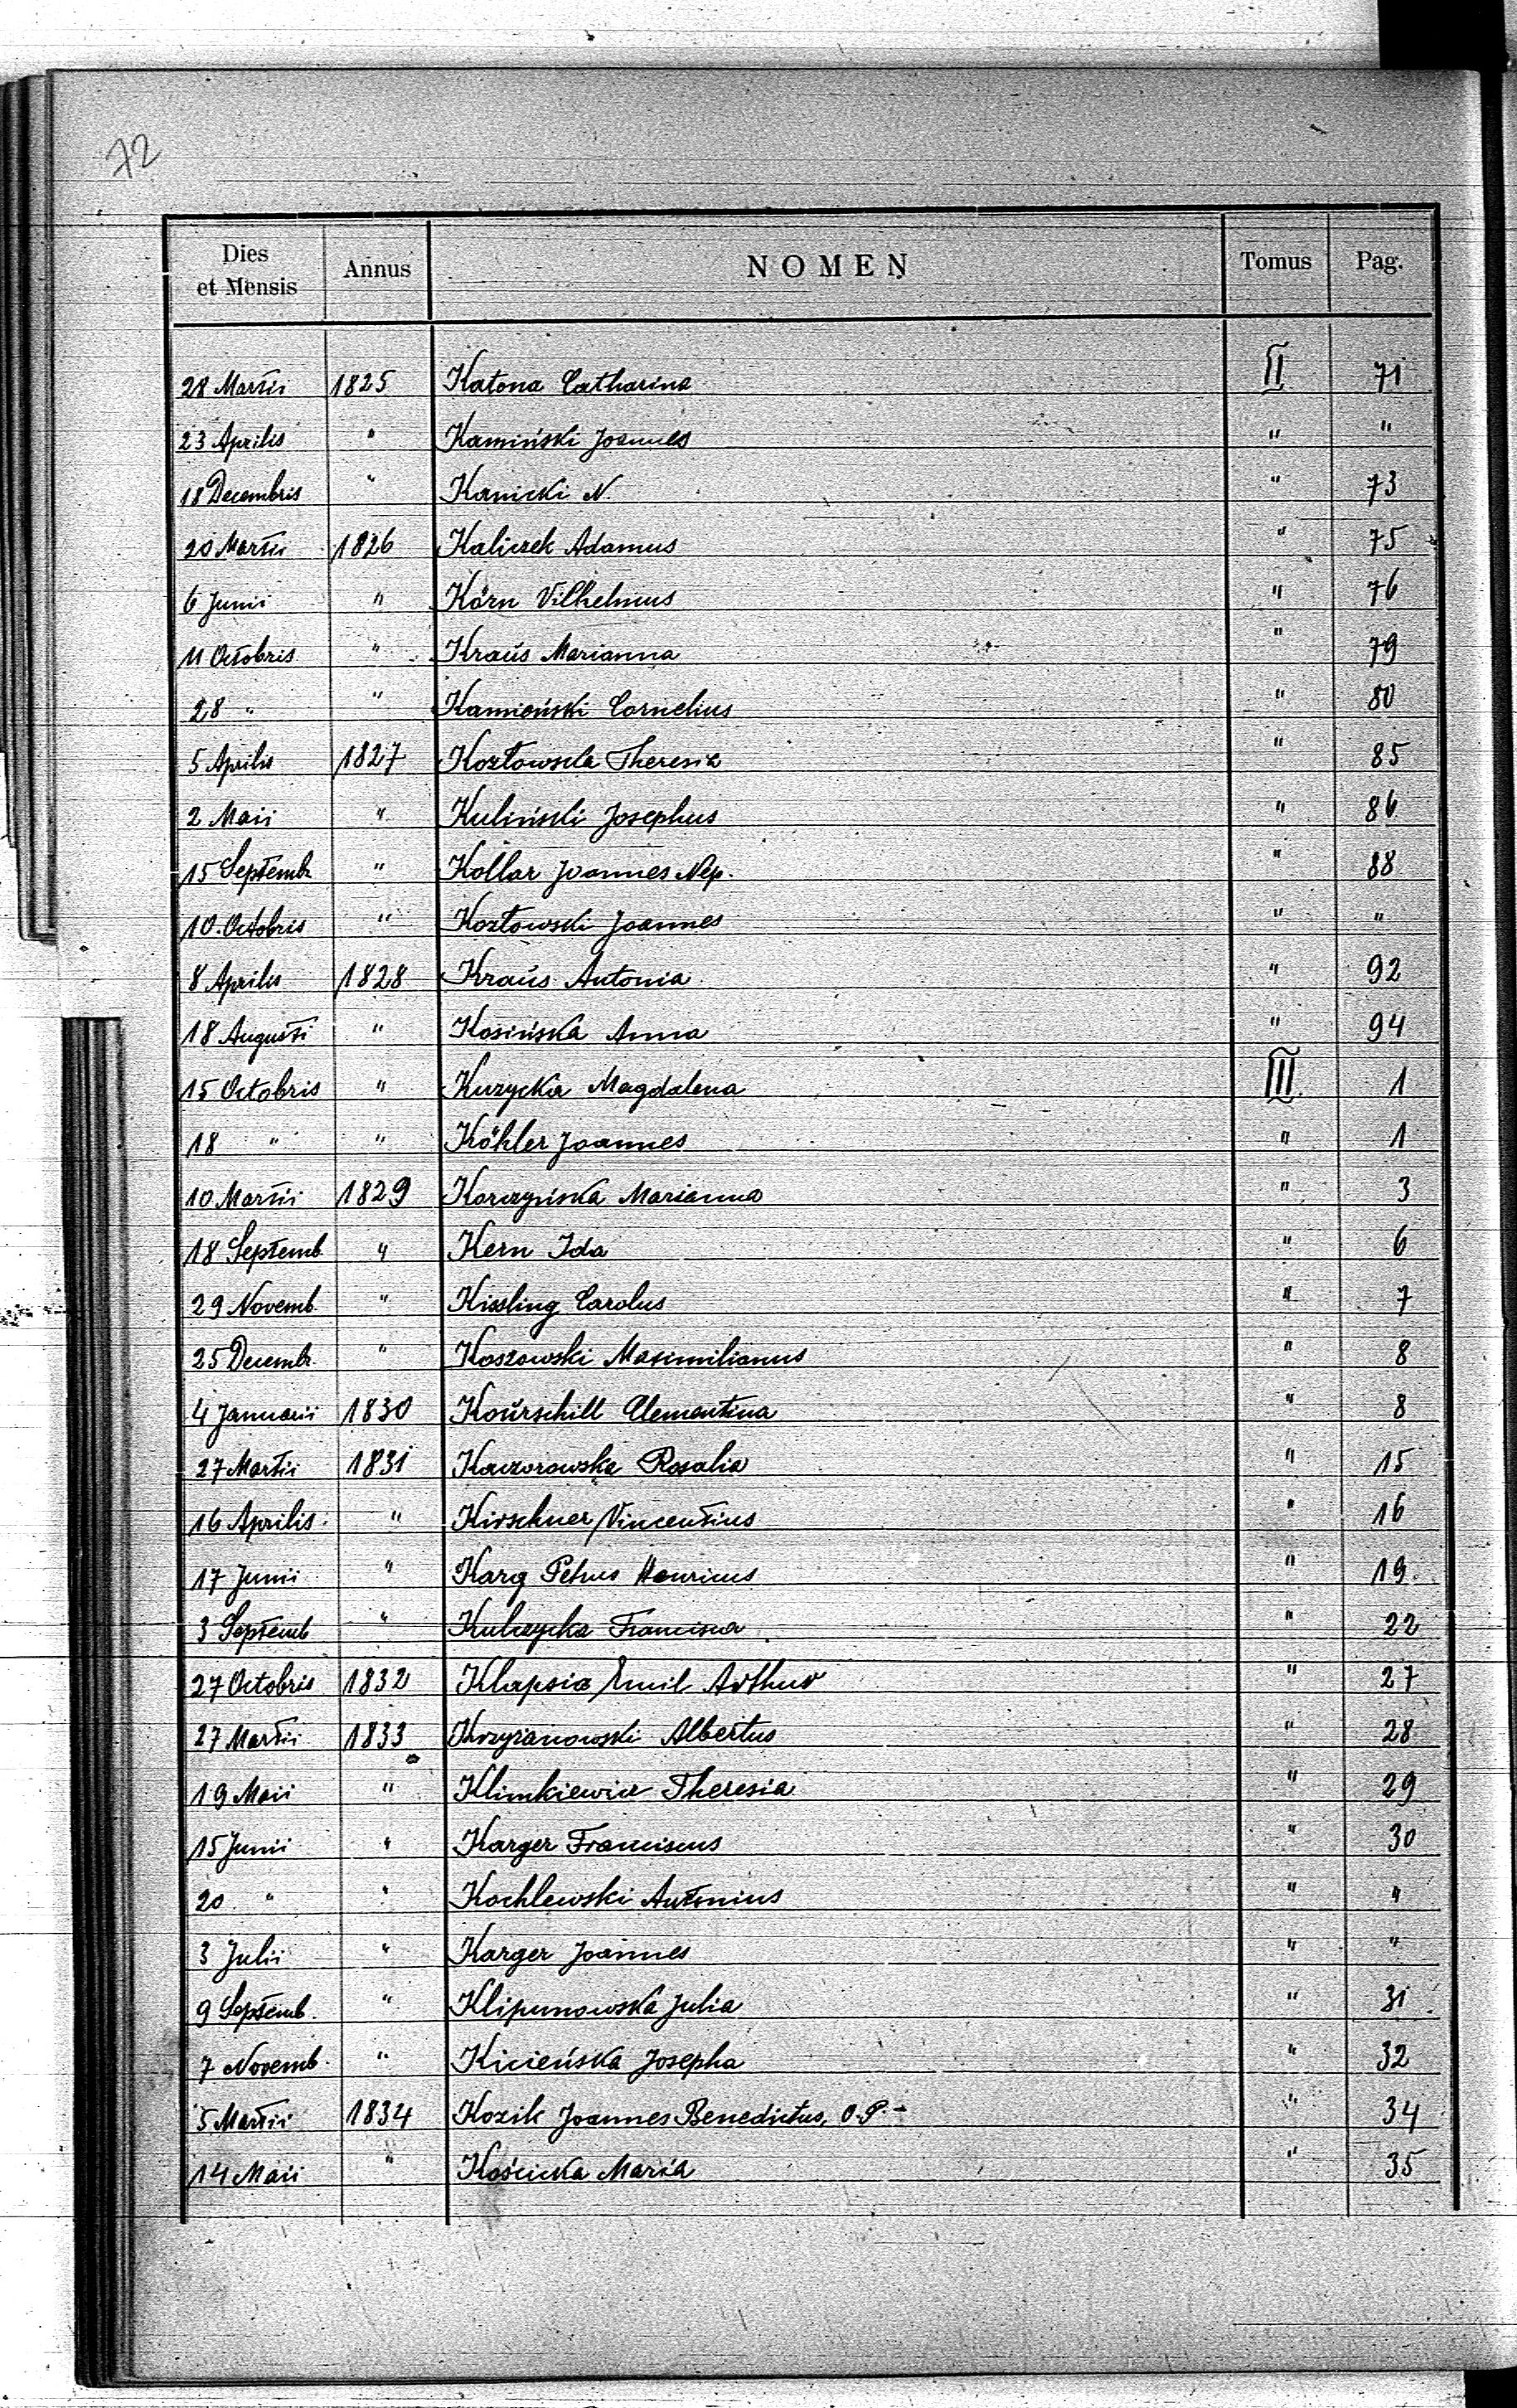 72
Dies et Mensis Annus NOMEN Tomus Pag.
28 Martii 1825 Katona Catharina II 71
23 Aprilis " Kamiński Joannes " "
18 Decembris " Kanicki N. " 73
20 Martii 1826 Kaliczek Adamus " 75
6 Junii " Körn Vilhelmus " 76
11 Octobris " Kraŭs Marianna " 79
28 " " Kamieński Cornelius " 80
5 Aprilis 1827 Kozłowska Theresia " 85
2 Maii " Kuliński Josephus " 86
15 Septembr. " Kollar Joannes Nep. " 88
10. Octobris " Kozłowski Joannes " "
8 Aprilis 1828 Kraŭs Antonia " 92
18 Augusti " Kosińska Anna " 94
15 Octobris " Kuzycka Magdalena III. 1
18 " " Köhler Joannes " 1
10 Martii 1829 Korczyńska Marianna " 3
18 Septemb. " Kern Ida " 6
29 Novemb. " Kissling Carolus " 7
25 Decembr. " Koszowski Maximilianus " 8
4 Januarii 1830 Koŭrschill Clementina " 8
27 Martii 1831 Kaczorowska Rosalia " 15
16 Aprilis " Kirschner Vincentius " 16
17 Junii " Karg Petrus Henricus " 19
3 Septemb " Kulczycka Francisca " 22
27 Octobris 1832 Klapsia Emil Arthur " 27
27 Martii 1833 Krzyżanowski Albertus " 28
19 Maii " Klimkiewicz Theresia " 29
15 Junii " Karger Franciscus " 30
20 " " Kochlewski Antonius " "
3 Julii " Karger Joannes " "
9 Septemb. " Klipunowska Julia " 31
7 Novemb. " Kicieńska Josepha " 32
5 Martii 1834 Kozik Joannes Benedictus, O.P.- " 34
14 Maii " Kościcka Maria " 35